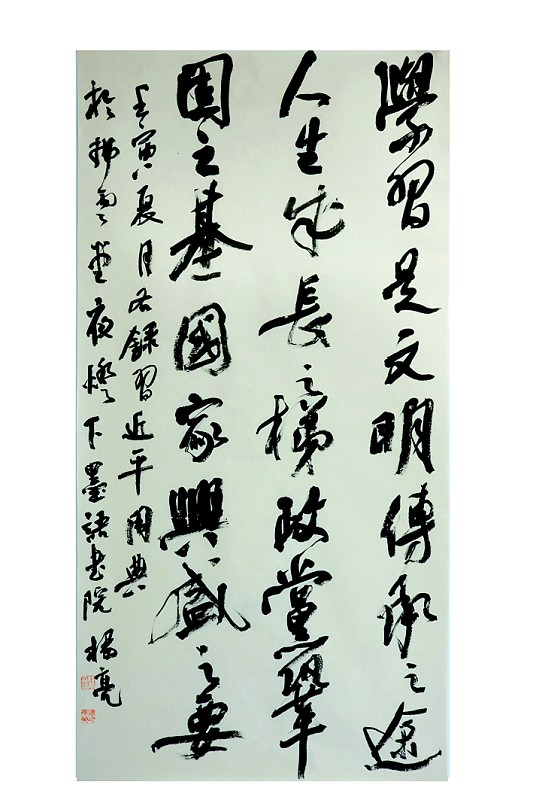 學習是文明傳承之途
人生成長之梯政黨鞏
固之基國家興盛之要
壬寅夏月右錄習近平用典
於拂雲堂夜燈下墨語書院楊亮